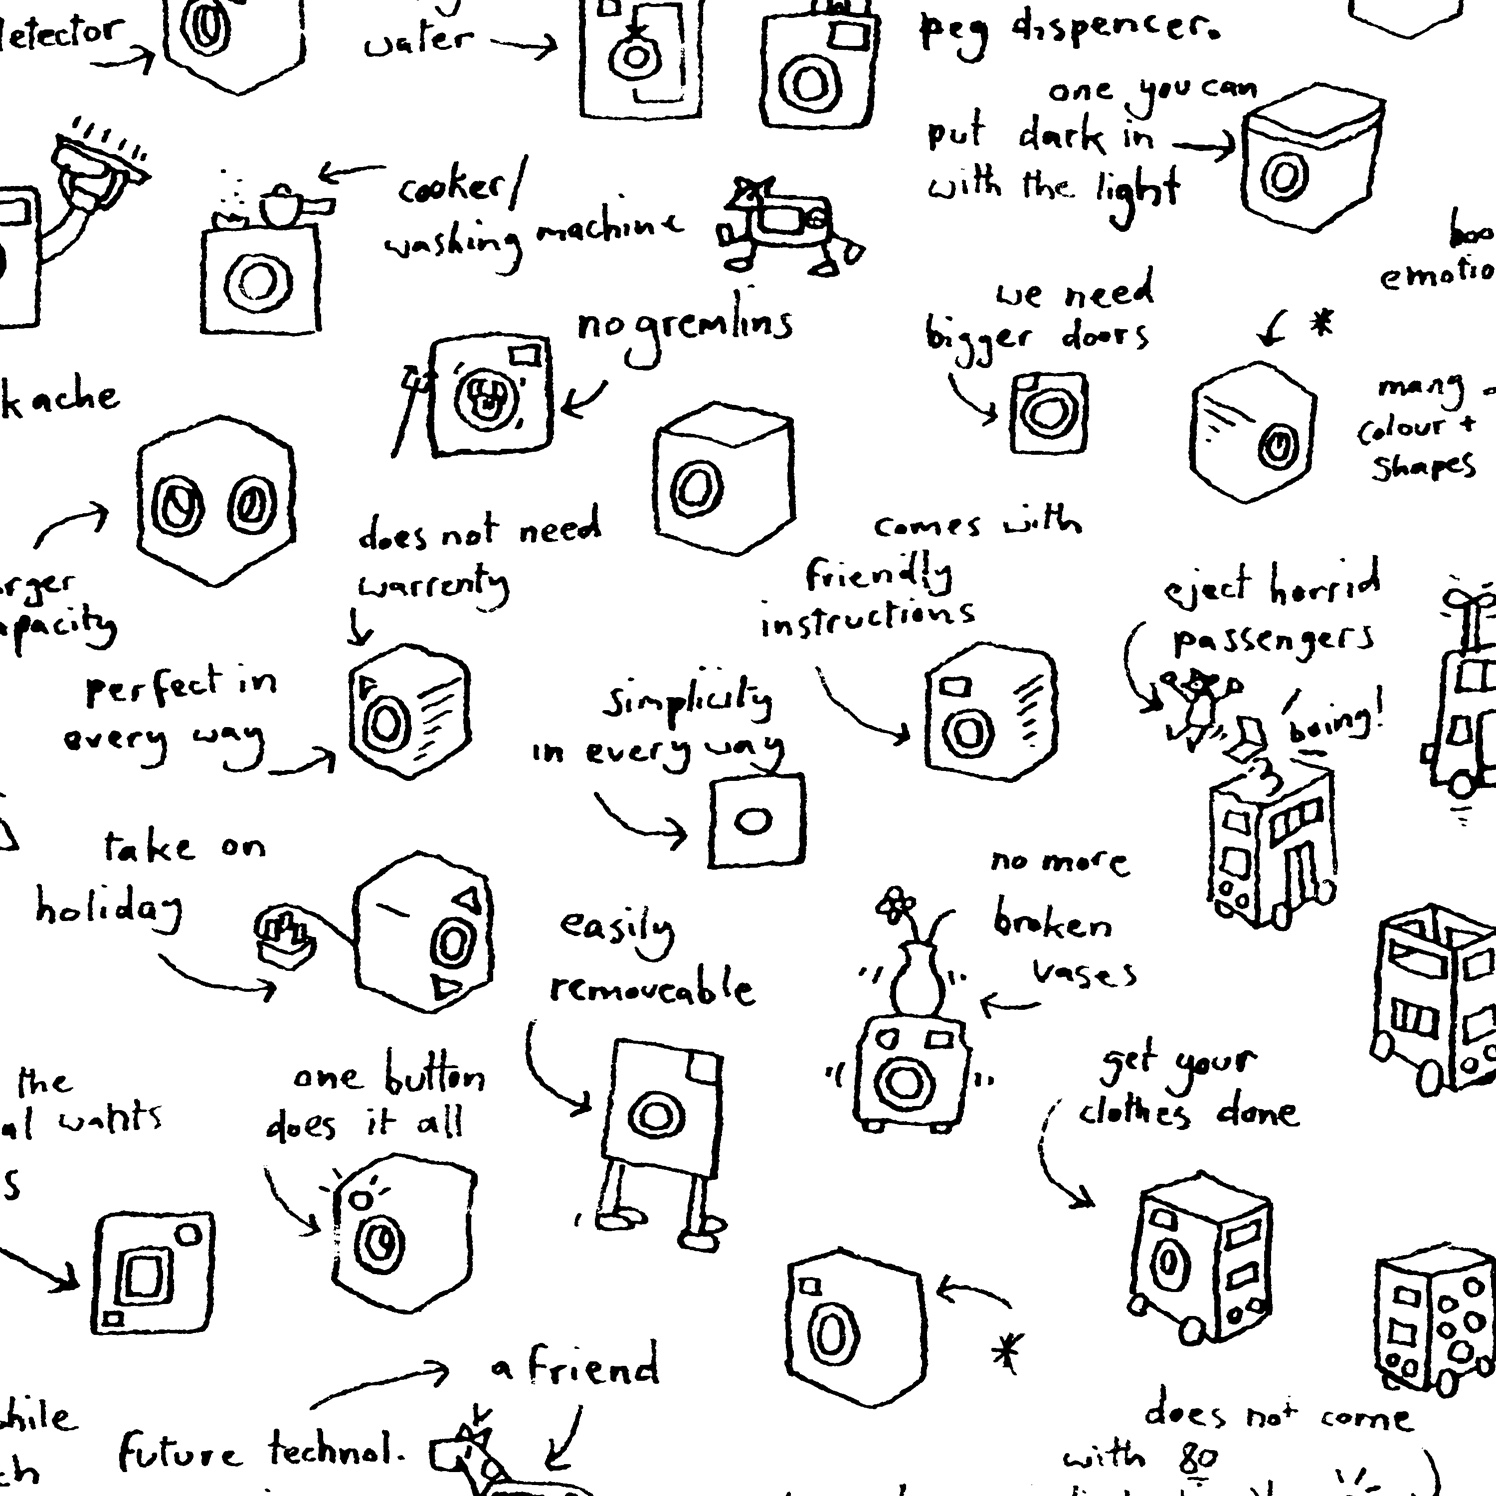 etector
water
peg dispencer.
one you can
put dark in
with the light
cooker/
washing machine
no gremlins
we need
bigger doors
boo
emotio
*
kache
many
colour +
shapes
does not need
warrenty
comes with
friendly
instructions
rger
apacity
eject horrid
passengers
boing!
perfect in
every way
simplicity
in every way
take on
holiday
easily
removeable
no more
broken
vases
the
al wants
s
one button
does it all
get your
clothes done
*
a friend
future technol.
hile
ch
does not come
with 80